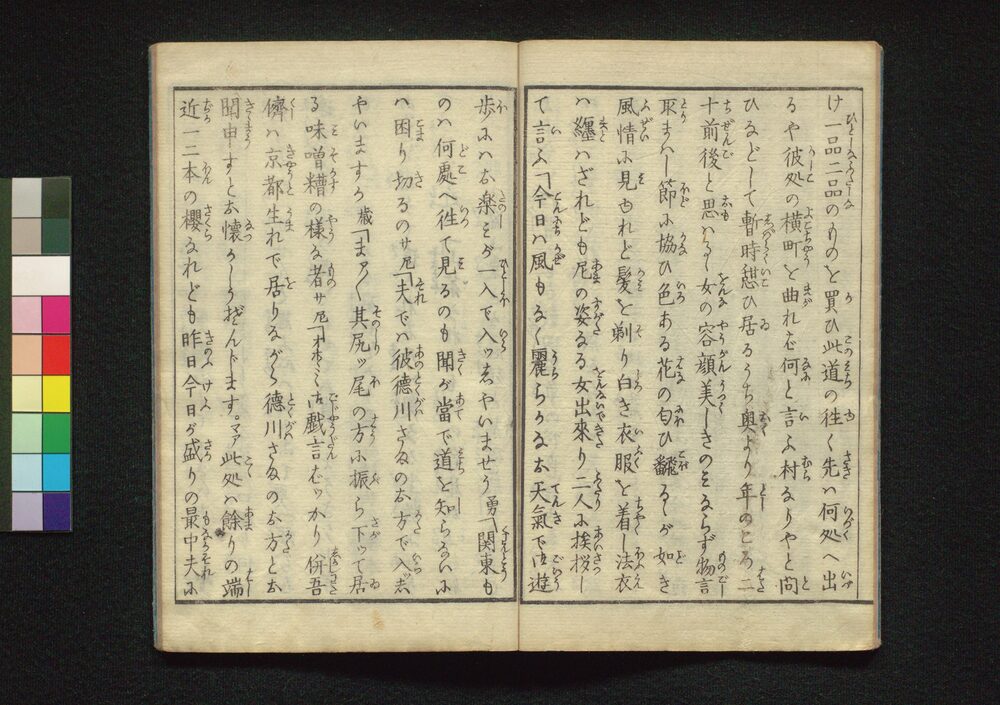 け一品二品のものを買ひ此道の往く先ハ何処へ出
るや彼処の横町を曲れば何と言ふ村なりやと問
ひなどして暫時憩ひ居るうち奥より年のころ二
十前後と思はるゝ女の容顔美しきのミならず物言
取まハし節に協ひ色ある花の匂ひ翻るゝが如き
風情に見ゆれど髪を剃り白き衣服を着し法衣
ハ纏ハざれども尼の姿なる女出來り二人に挨拶し
て言ふ「今日ハ風もなく麗らかなお天氣で御遊
歩にハお楽ミが一入で入ッしやいませう勇「関東も
のハ何處へ往て見るのも聞が當で道を知らないに
ハ困り切るのサ尼「夫でハ彼徳川さまのお方で入ッし
やいますか歳「まアく其尻ッ尾の方に振ら下ッて居
る味噌糟の様な者サ尼「オホヽミ御戯言ばッかり併吾
儕ハ京都生れで居りながら徳川さまのお方とお
聞申すとお懐かしう存んじます。マア此処ハ餘りの端
近一二本の櫻なれども昨日今日が盛りの最中夫に